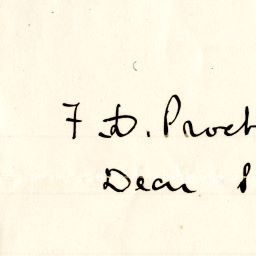 F. D. Proct
Dear S